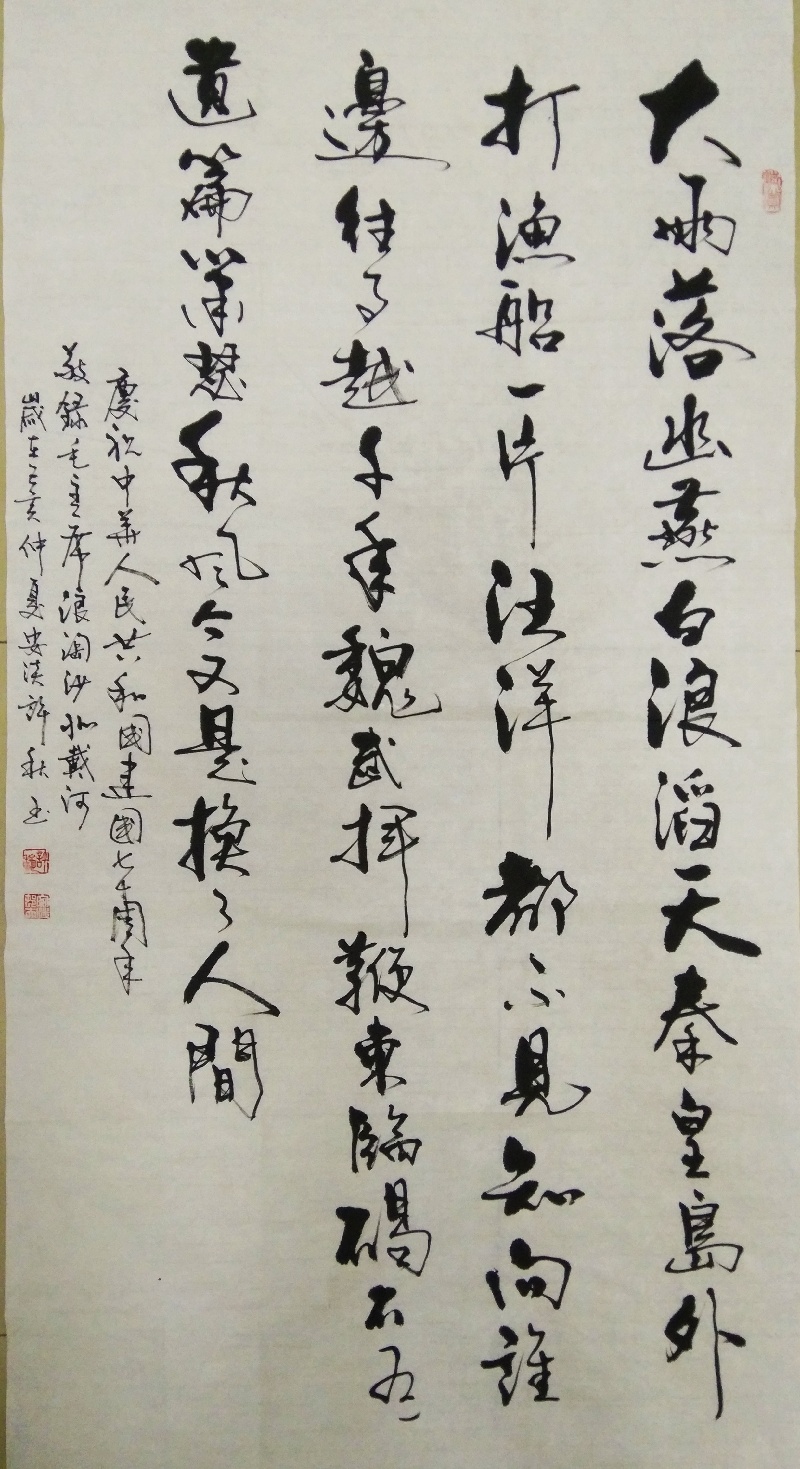 大雨落幽燕白浪滔天秦皇島外
打漁船一片汪洋都不見知向誰
邊往事越千年魏武揮鞭東臨碣石有
遺篇蕭瑟秋風今又是換了人間
慶祝中華人民共和國建國七十周年
敬錄毛主席浪淘沙北戴河
歲在己亥仲夏安淡許秋玉